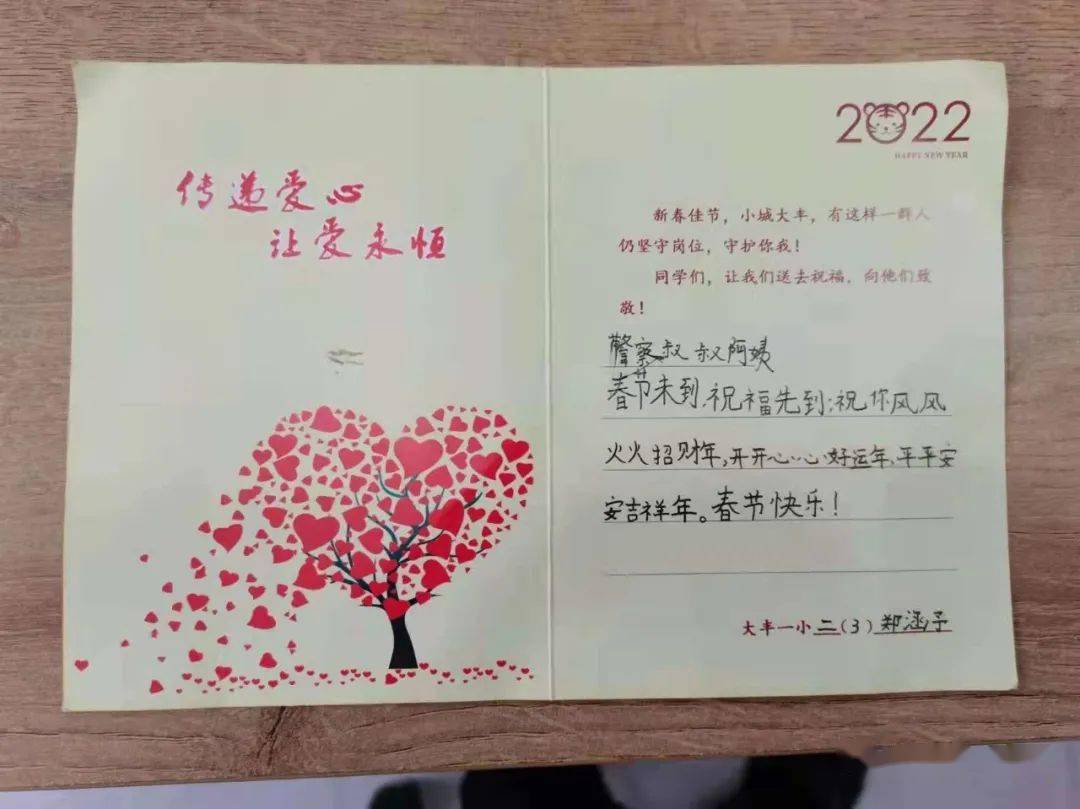 传递爱心
让爱永恒
2022
HAPPY NEW YEAR
新春佳节，小城大丰，有这样一群人
仍坚守岗位，守护你我！
同学们，让我们送去祝福，向他们致
敬！
警察叔叔阿姨
春节未到，祝福先到；祝你风风
火火招财年，开开心心好运年，平平安
安吉祥年。春节快乐！
大丰一小二(3)郑涵予